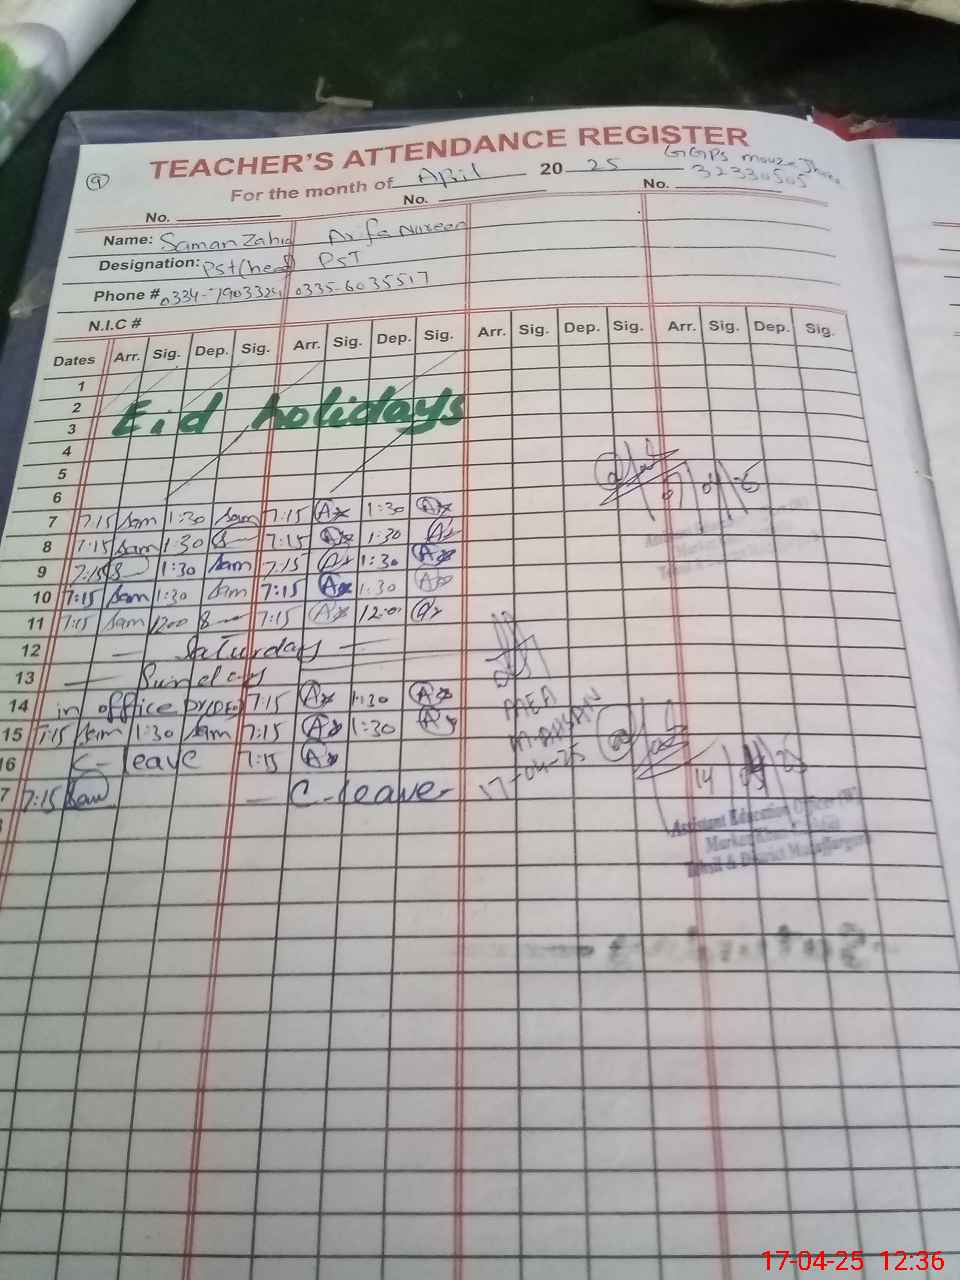 TEACHER'S ATTENDANCE REGISTER
9 For the month of April 20 25 GGPS mouza
32330505
No. No. No.
Name: Saman Zahid Arifa Nareen
Designation: Pst(head) PST
Phone # 0334-7903324 0335-6035517
N.I.C #
Dates Arr. Sig. Dep. Sig. Arr. Sig. Dep. Sig. Arr. Sig. Dep. Sig. Arr. Sig. Dep. Sig.
1
2 Eid holidays
3
4
5
6
7 7:15 Sam 1:30 Sam 7:15 1:30
8 7:15 Sam 1:30 7:15 1:30
9 7:15 1:30 Sam 7:15 1:30
10 7:15 Sam 1:30 Sam 7:15 1:30
11 7:15 Sam 1200 7:15 12:00
12 — Saturdays —
13 — Sundays
14 in office 7:15 1:30
15 7:15 Sam 1:30 Sam 7:15 1:30
16 C-leave 7:15
7 7:15 Sam — C-leave
MEA
17-04-25
14
Assistant Education Officer (W)
Markaz Khan
Tehsil & District Muzaffargarh
17-04-25 12:36